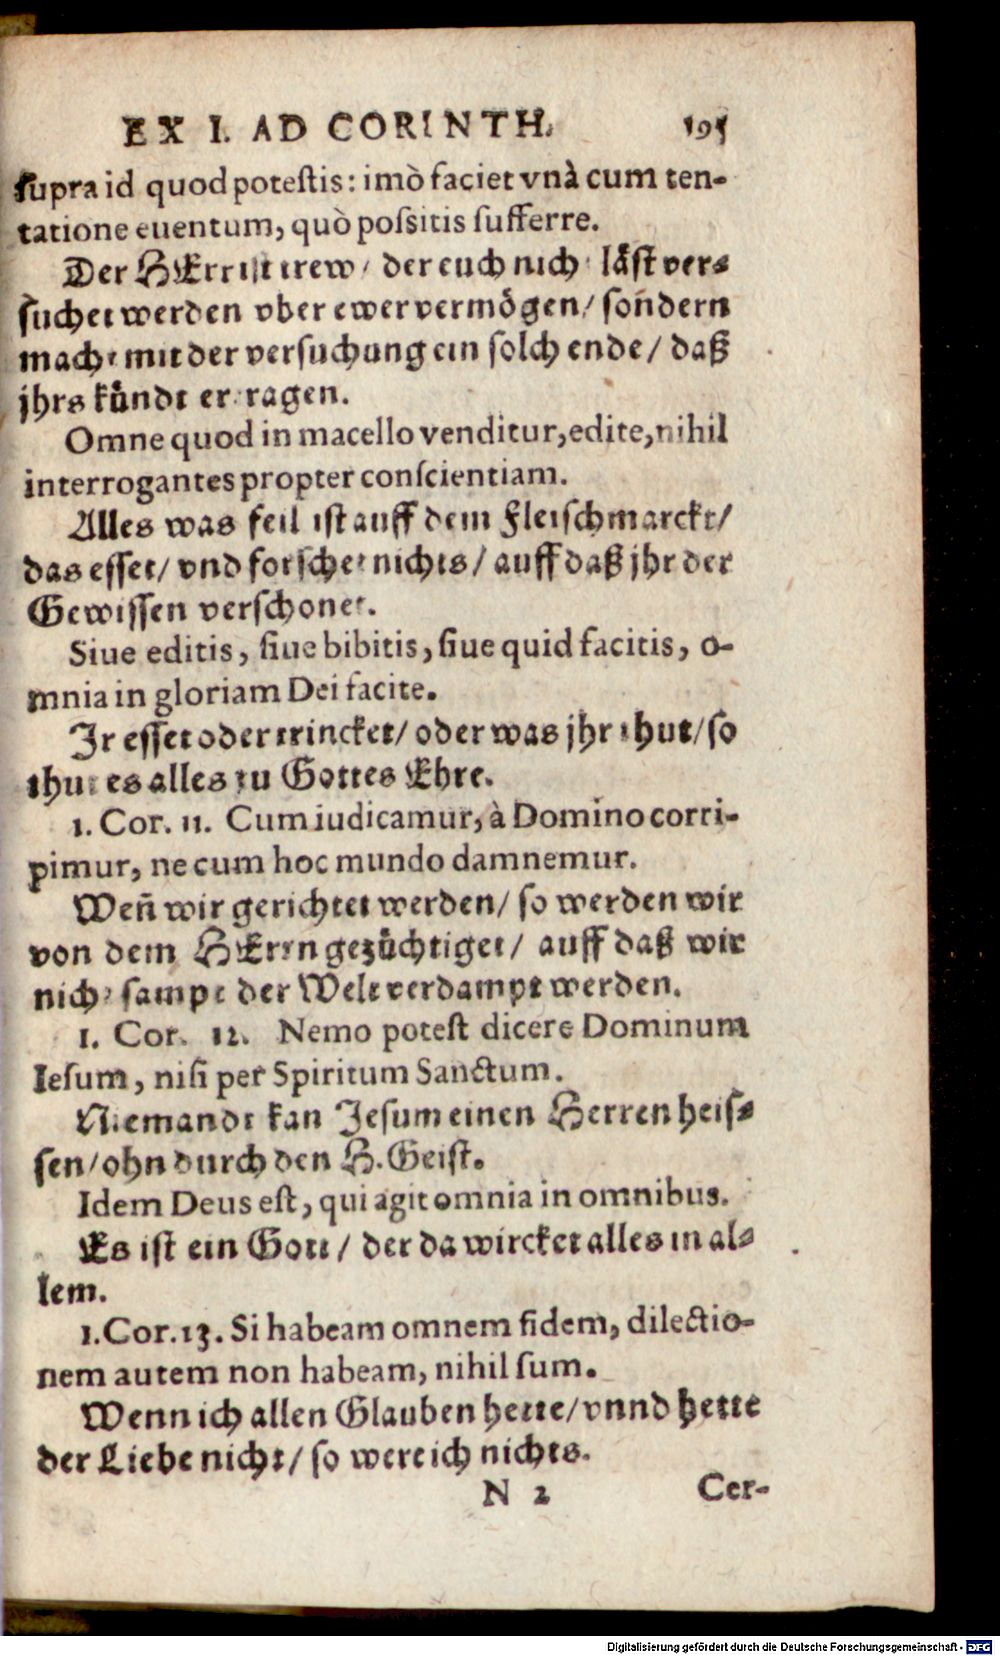 EX I. AD CORINTH. 195
supra id quod potestis: imò faciet vnà cum ten-
tatione euentum, quò possitis sufferre.
Der HErr ist trew / der euch nicht låst ver-
suchet werden vber ewer vermögen / sondern
macht mit der versuchung ein solch ende / daß
jhrs kůndt ertragen.
Omne quod in macello venditur, edite, nihil
interrogantes propter conscientiam.
Alles was feil ist auff dem Fleischmarckt /
das esset / vnd forschet nichts / auff daß jhr der
Gewissen verschonet.
Siue editis, siue bibitis, siue quid facitis, o-
mnia in gloriam Dei facite.
Jr esset oder trincket / oder was jhr thut / so
thut es alles zu Gottes Ehre.
1. Cor. 11. Cum iudicamur, à Domino corri-
pimur, ne cum hoc mundo damnemur.
Weñ wir gerichtet werden / so werden wir
von dem HErrn gezůchtiget / auff daß wir
nicht sampt der Welt verdampt werden.
1. Cor. 12. Nemo potest dicere Dominum
Iesum, nisi per Spiritum Sanctum.
Niemandt kan Jesum einen Herren heis-
sen / ohn durch den H. Geist.
Idem Deus est, qui agit omnia in omnibus.
Es ist ein Gott / der da wircket alles in al-
lem.
1. Cor. 13. Si habeam omnem fidem, dilectio-
nem autem non habeam, nihil sum.
Wenn ich allen Glauben hette / vnnd hette
der Liebe nicht / so were ich nichts.
N 2 Cer-
Digitalisierung gefördert durch die Deutsche Forschungsgemeinschaft - DFG